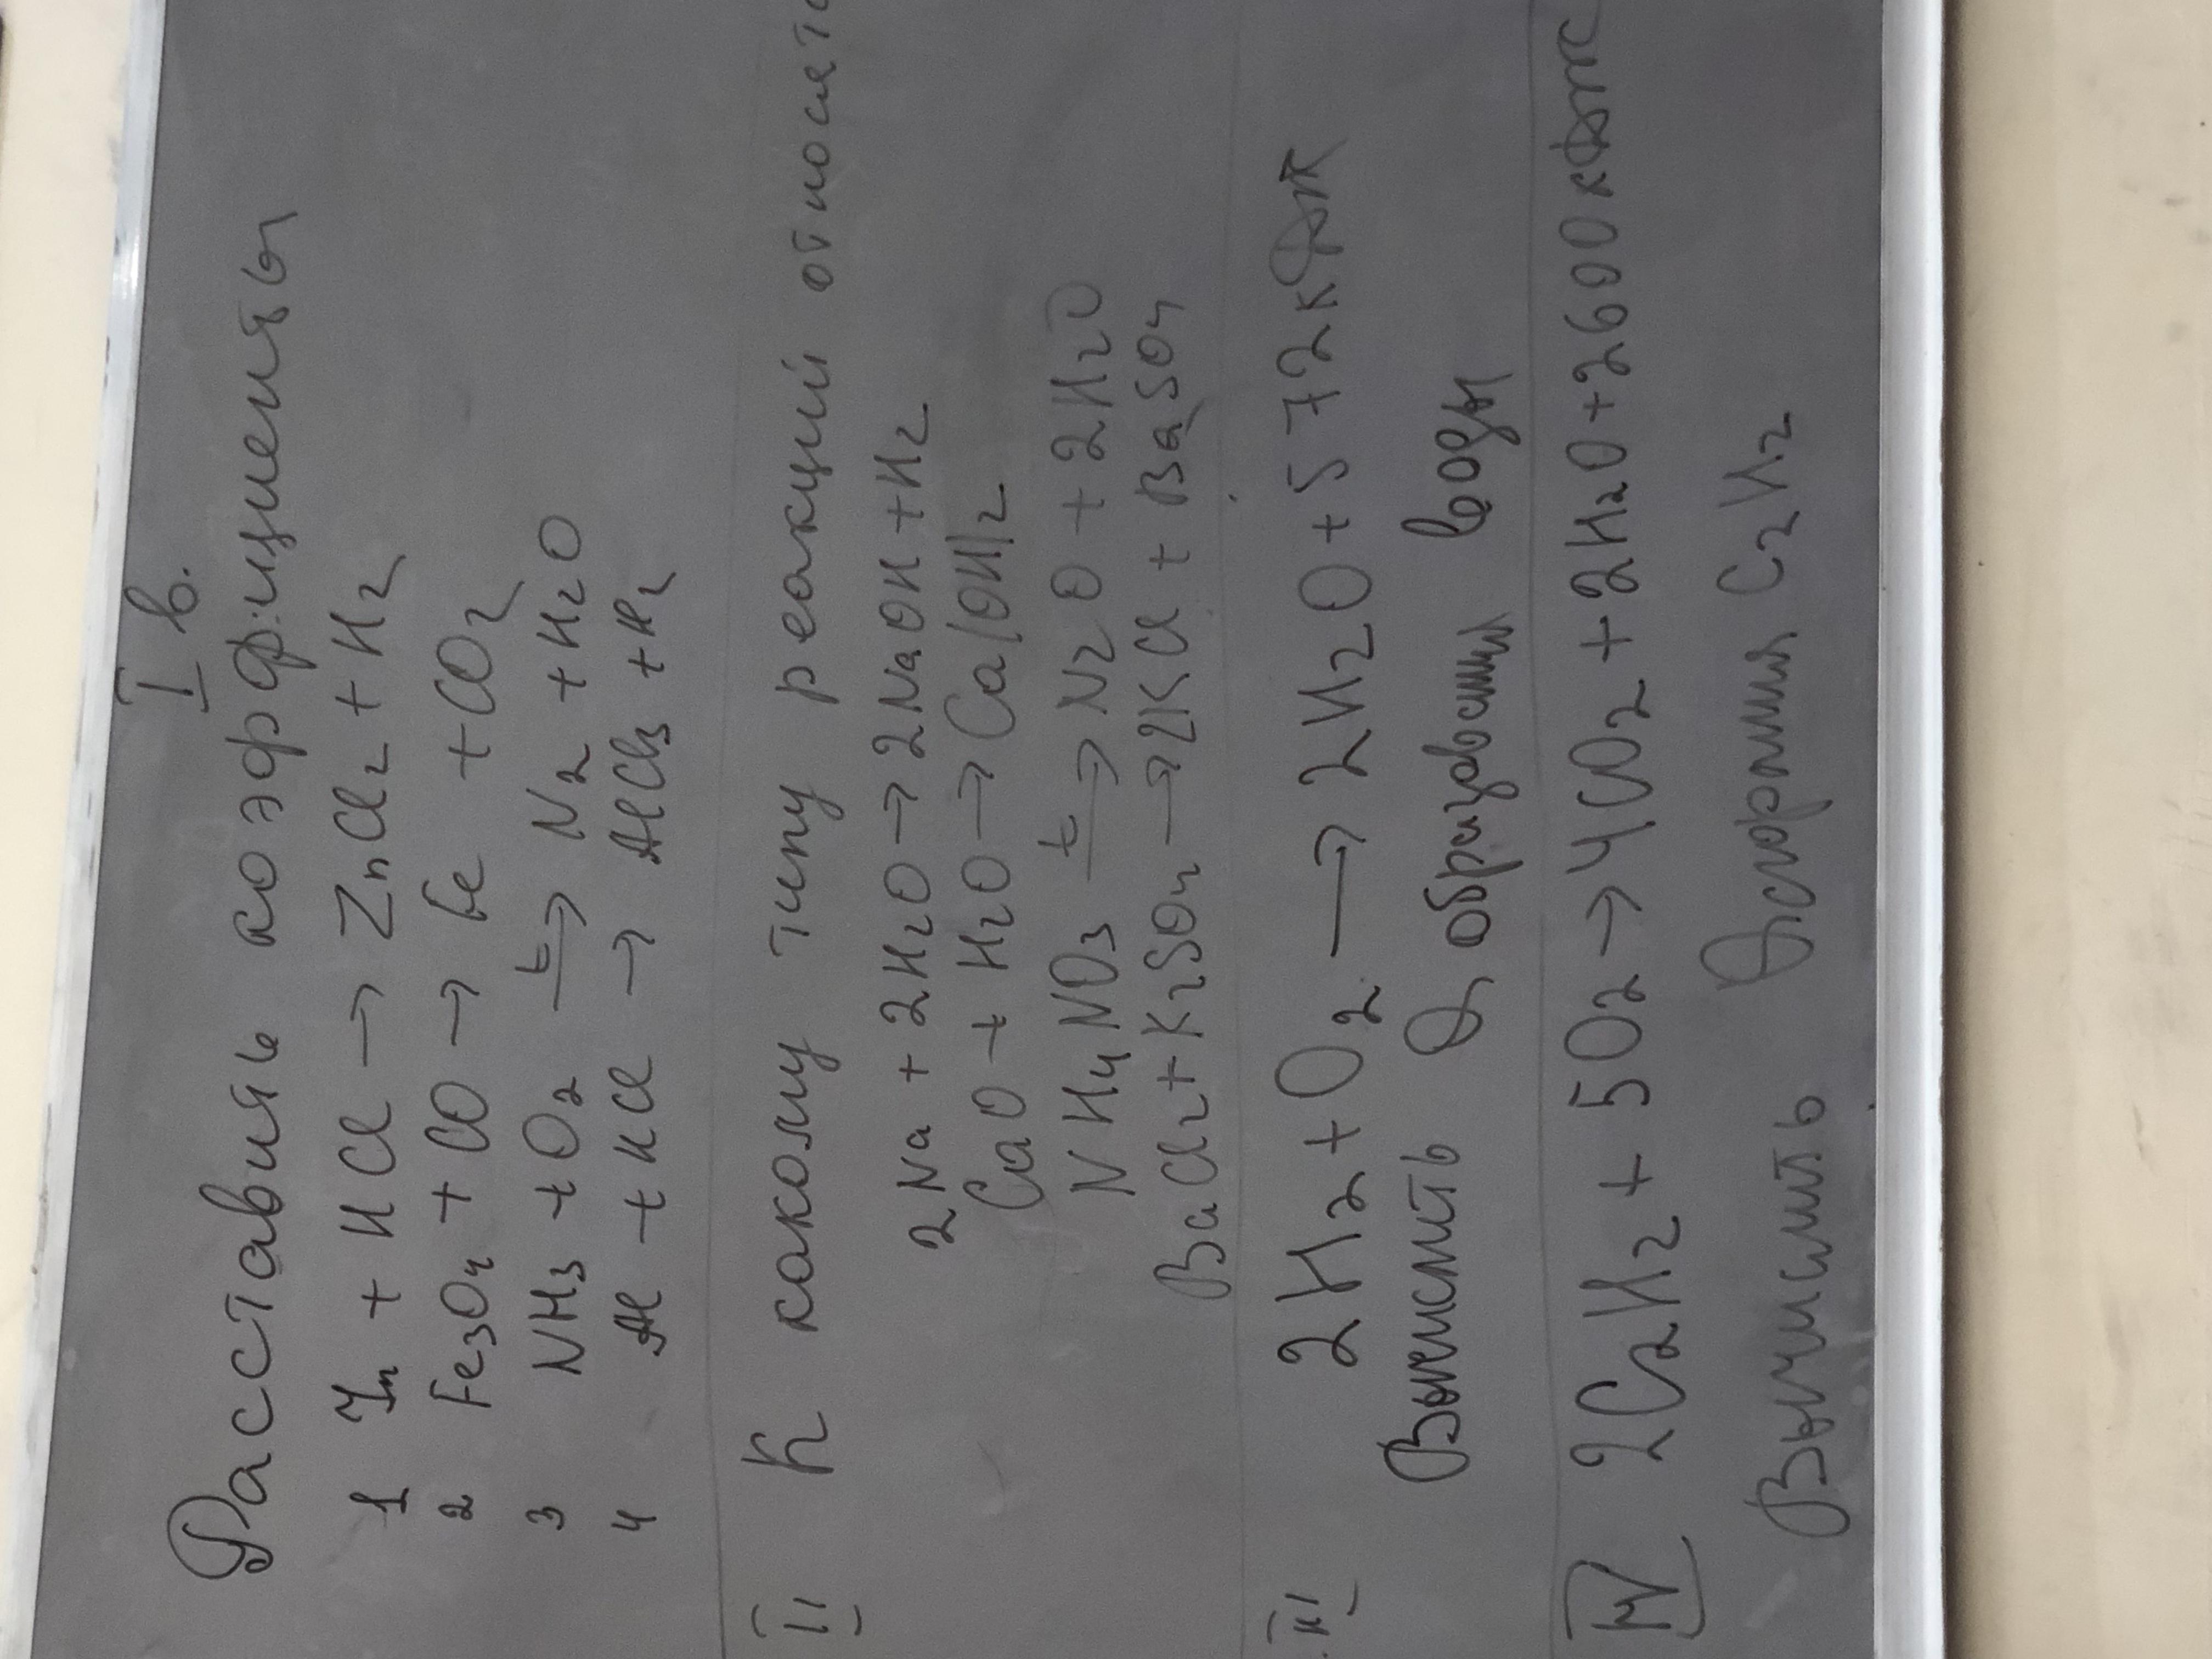 I в.
Расставить коэффициенты
1 Zn + HCl → ZnCl₂ + H₂
2 Fe₃O₄ + CO → Fe + CO₂
3 NH₃ + O₂ →ᵗ N₂ + H₂O
4 Al + HCl → AlCl₃ + H₂
II К какому типу реакций относят
2Na + 2H₂O → 2NaOH + H₂
CaO + H₂O → Ca(OH)₂
NH₄NO₃ →ᵗ N₂O + 2H₂O
BaCl₂ + K₂SO₄ → 2KCl + BaSO₄
III 2H₂ + O₂ → 2H₂O + 572кДж
Вычислить Q образования воды
IV 2C₂H₂ + 5O₂ → 4CO₂ + 2H₂O + 2600кДж
Вычислить Qсгорания C₂H₂